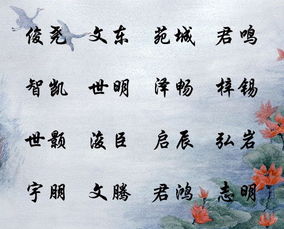 俊尧 文东 苑城 君鸣
智凯 世明 泽畅 梓锡
世颢 浚臣 启辰 弘岩
宇朋 文腾 君鸿 志明